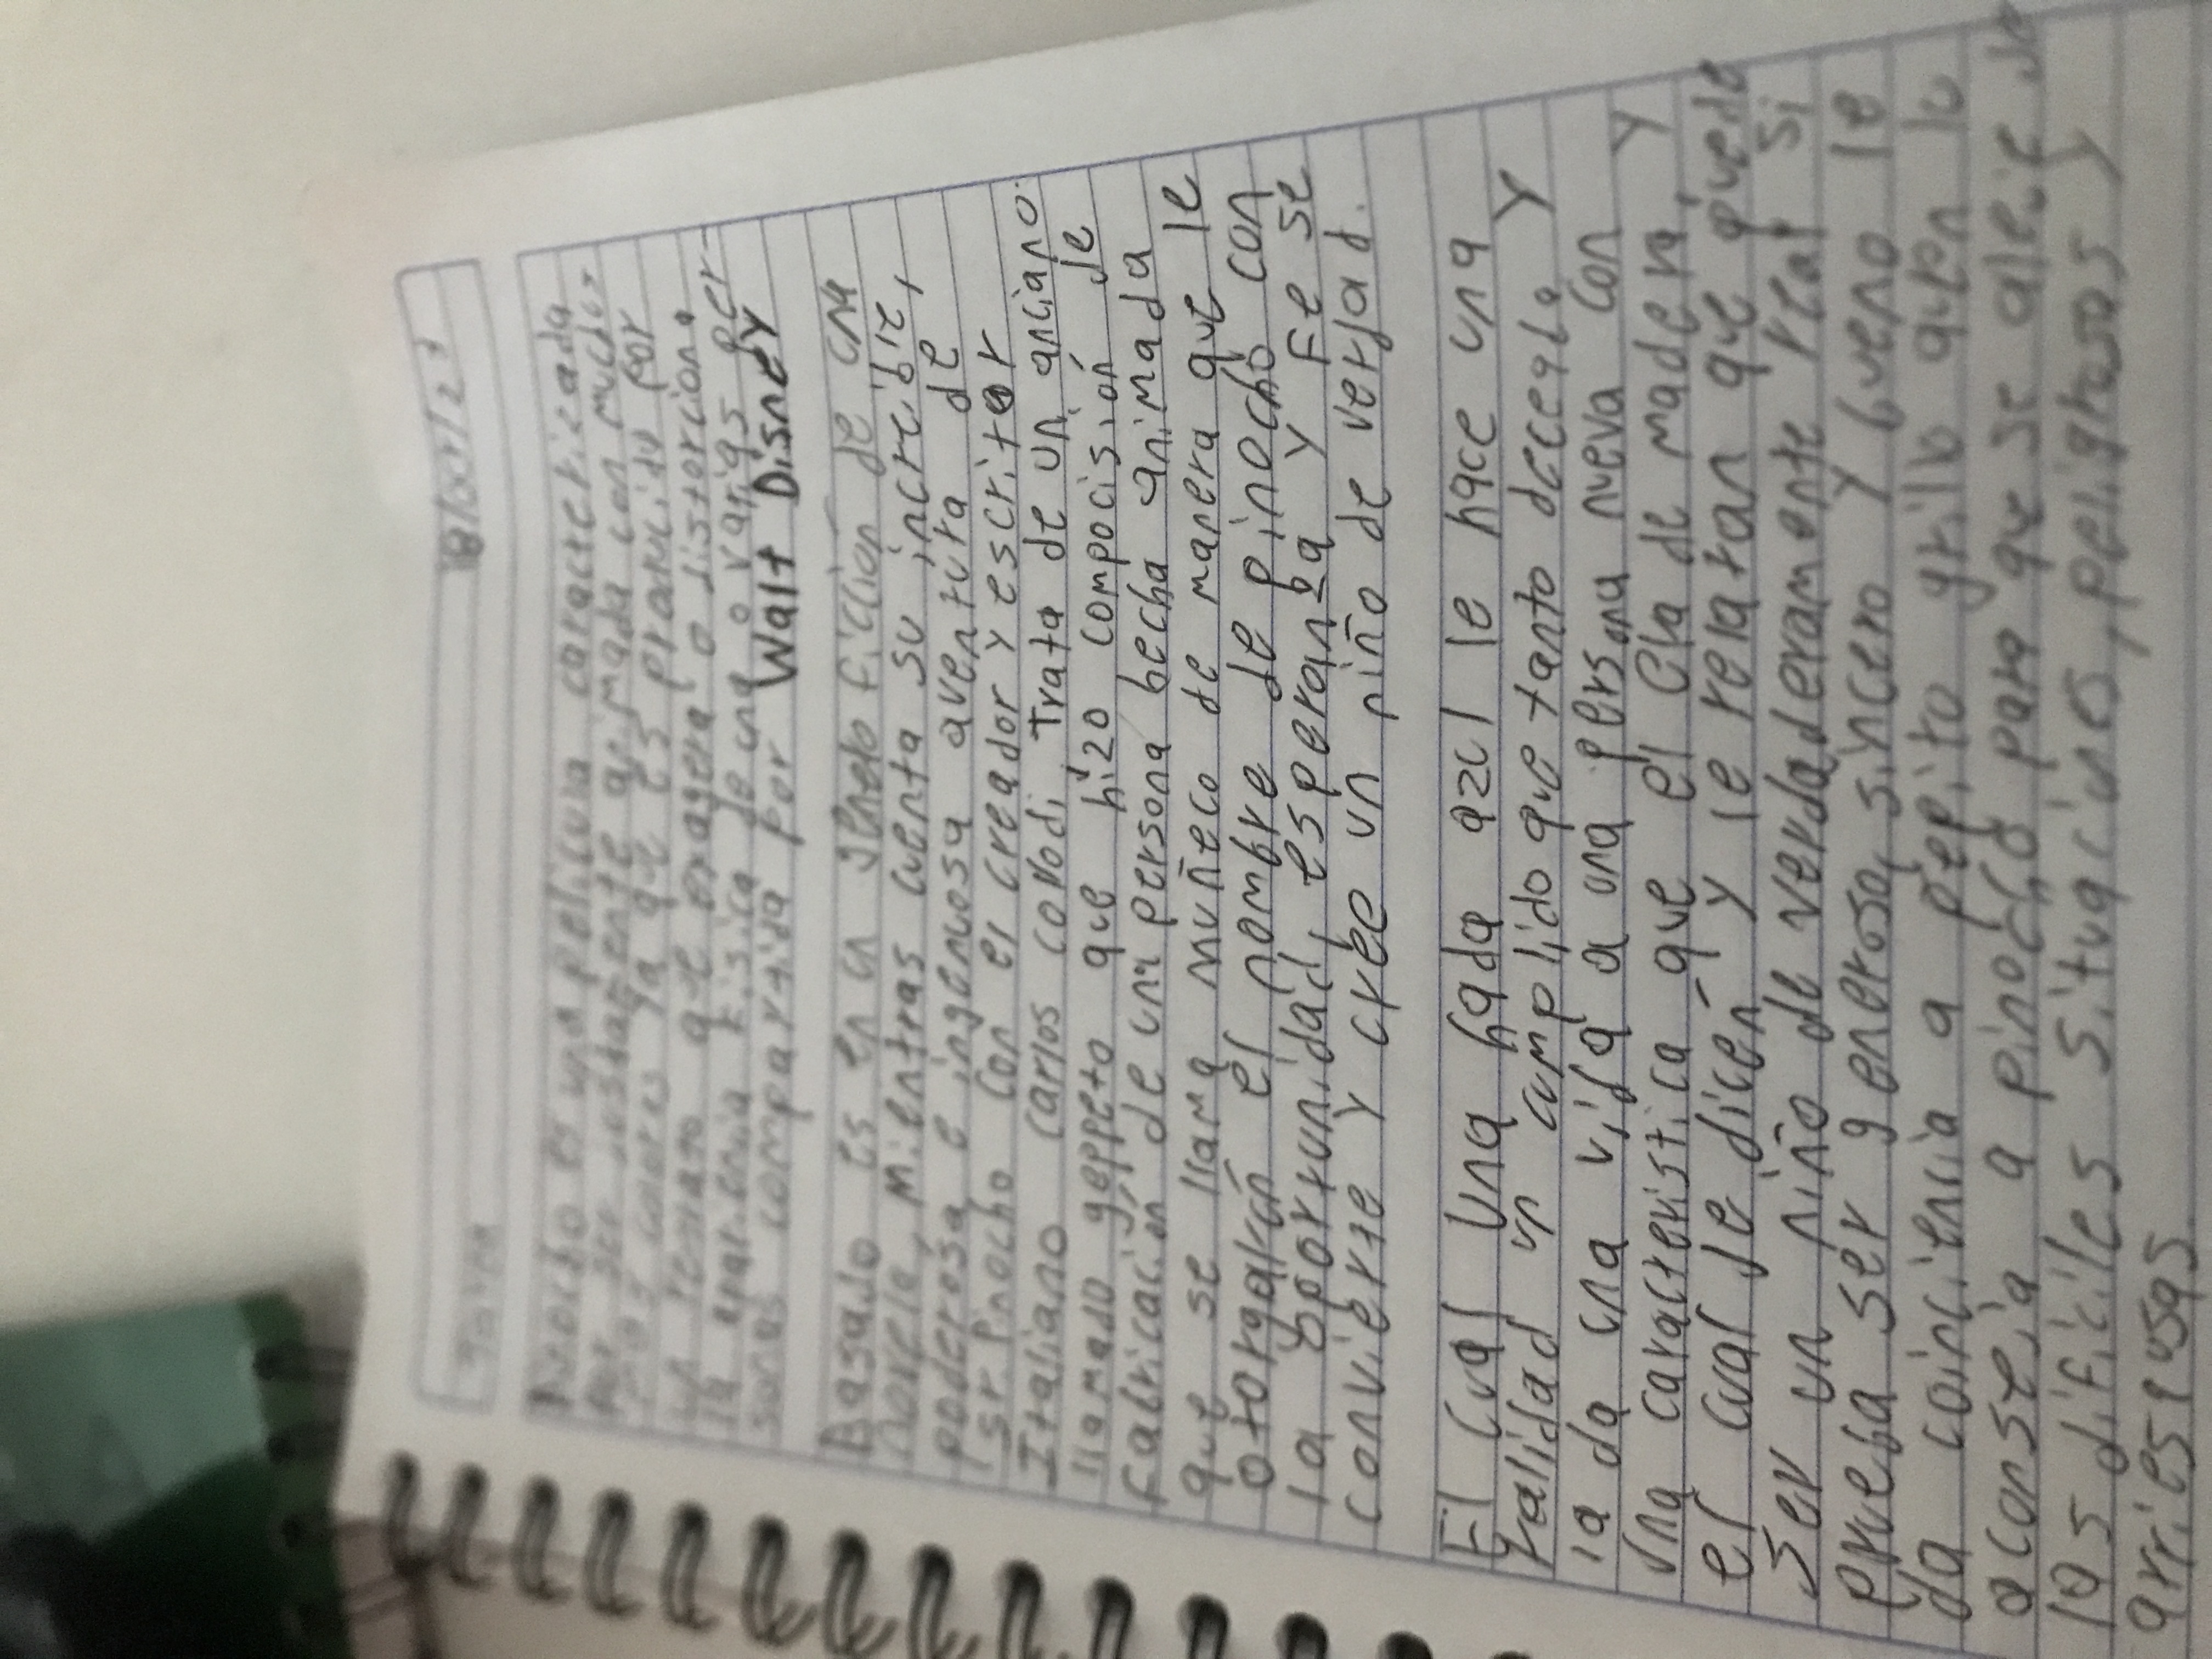 8/oct/27
Pinocho es una película caracterizada
por ser justamente animada con muchos
colores ya que es producida por
que exagera o distorciona
la apariencia física de una o varias per-
sonas compartida por Walt Disney
Basado es en un genero ficción de una
novela, mientras cuenta su increíble,
poderosa e ingenuosa aventura de
ser Pinocho con el creador y escritor
Italiano Carlos covodi, Trata de un anciano.
llamado geppeto que hizo compocisión de
fabricación de una persona hecha animada
que se llama muñeco de manera que le
otorgarón el nombre de pinocho con
la oportunidad, esperanza y Fe se
convierte y cree un niño de verdad.
El cual una hada azul le hace una
realidad un cumplido que tanto deceaba y
la da una vida a una persona nueva con
una característica que el Ela de madera, y
el cual se dicen y le relatan que puede
ser un niño de verdaderamente real si
prueba ser generoso, sincero y bueno le
da conciencia a pepito grillo quen lo
aconseja a pinocho para que se aleje de
las difíciles situaciones, peligrosas y
arriesgusas